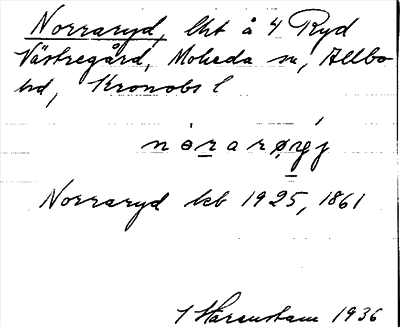 Norraryd, lht å 4 Ryd
Västregård, Moheda sn, Allbo
hd, Kronobs l
n o r a r ø g j
Norraryd kb 1925, 1861
J Harenstam 1936